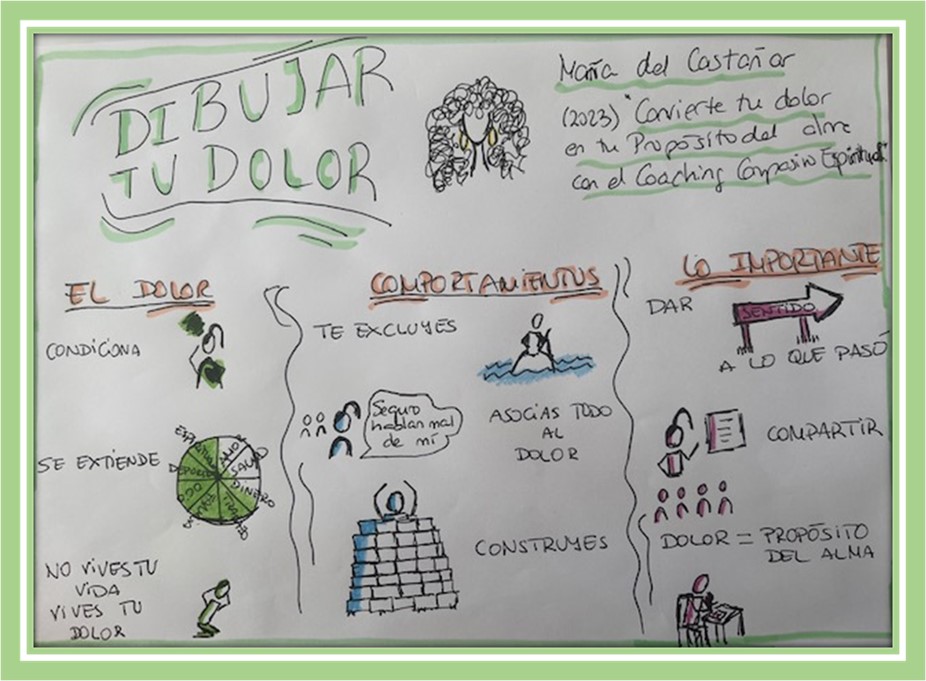 DIBUJAR
TU DOLOR
María del Castañar
(2023) "Convierte tu dolor
en tu Propósito del alma
con el Coaching Compasivo Espiritual"
EL DOLOR
CONDICIONA
SE EXTIENDE
ESPIRITUAL
AMOR
SALUD
DINERO
TRABAJO
OCIO
DEPORTE
NO VIVES TU
VIDA
VIVES TU
DOLOR
COMPORTAMIENTOS
TE EXCLUYES
Seguro
hablan mal
de mí
ASOCIAS TODO
AL
DOLOR
CONSTRUYES
LO IMPORTANTE
DAR
SENTIDO
A LO QUE PASÓ
COMPARTIR
DOLOR = PROPÓSITO
DEL ALMA